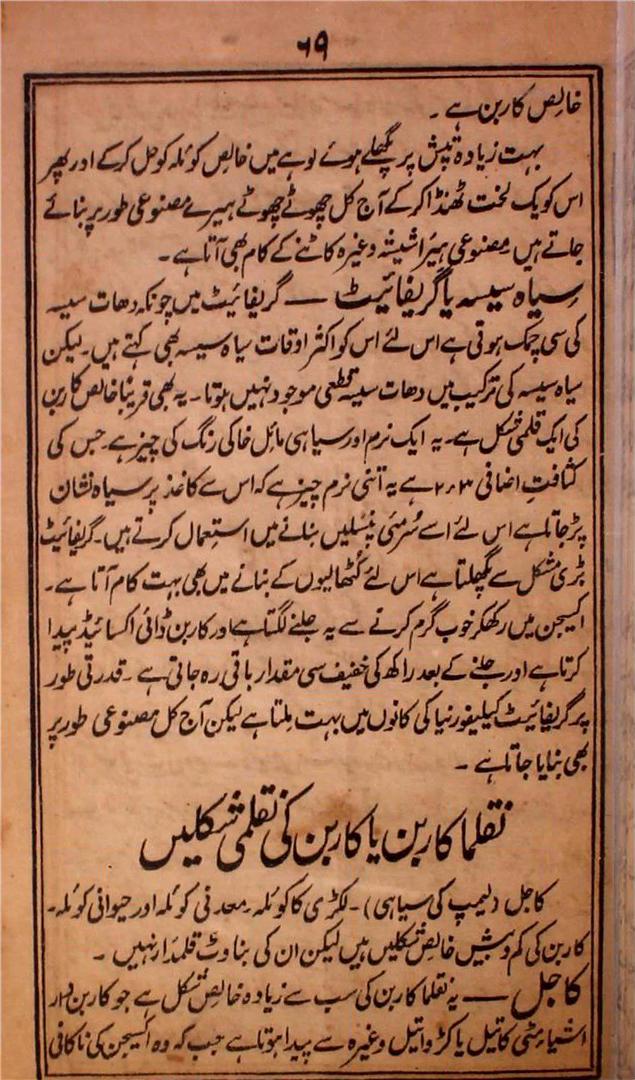 ۶۹
خالص کاربن ہے ۔
بہت زیادہ تپش پر پگھلے ہوئے لوہے میں خالص کوئلہ کو حل کرکے اور پھر
اس کو یک لخت ٹھنڈا کر کے آج کل چھوٹے چھوٹے ہیرے مصنوعی طور پر بنائے
جاتے ہیں مصنوعی ہیرا شیشہ وغیرہ کاٹنے کے کام بھی آتا ہے ۔
سیاہ سیسہ یا گریفائیٹ — گریفائیٹ میں چونکہ دھات سیسہ
کی سی چمک ہوتی ہے اس لئے اس کو اکثر اوقات سیاہ سیسہ بھی کہتے ہیں ۔ لیکن
سیاہ سیسہ کی ترکیب میں دھات سیسہ قطعی موجود نہیں ہوتا ۔ یہ بھی قریباً خالص کاربن
کی ایک قلمی شکل ہے ۔ یہ ایک نرم اور سیاہی مائل خاکی رنگ کی چیز ہے جس کی
کثافت اضافی ۲٫۳ ہے یہ اتنی نرم چیز ہے کہ اس سے کاغذ پر سیاہ نشان
پڑ جاتا ہے اس لئے اسے سُرمئی پنسلیں بنانے میں استعمال کرتے ہیں ۔ گریفائیٹ
بڑی مشکل سے پگھلتا ہے اس لئے کُٹھالیوں کے بنانے میں بھی بہت کام آتا ہے ۔
آکسیجن میں رکھکر خوب گرم کرنے سے یہ جلنے لگتا ہے اور کاربن ڈائی اکسائیڈ پیدا
کرتا ہے اور جلنے کے بعد راکھ کی خفیف سی مقدار باقی رہ جاتی ہے ۔ قدرتی طور
پر گریفائیٹ کیلیفورنیا کی کانوں میں بہت ملتا ہے لیکن آج کل مصنوعی طور پر
بھی بنایا جاتا ہے ۔
نقلما کاربن یا کاربن کی نقلمی شکلیں
کاجل (لیمپ کی سیاہی) ۔ لکڑی کا کوئلہ ۔ معدنی کوئلہ اور حیوانی کوئلہ ۔
کاربن کی کم و بیش خالص شکلیں ہیں لیکن ان کی بناوٹ قلمدار نہیں ۔
کاجل — یہ نقلما کاربن کی سب سے زیادہ خالص شکل ہے جو کاربن دار
اشیاء مٹی کا تیل یا کڑوا تیل وغیرہ سے پیدا ہوتا ہے جب کہ وہ آکسیجن کی ناکافی